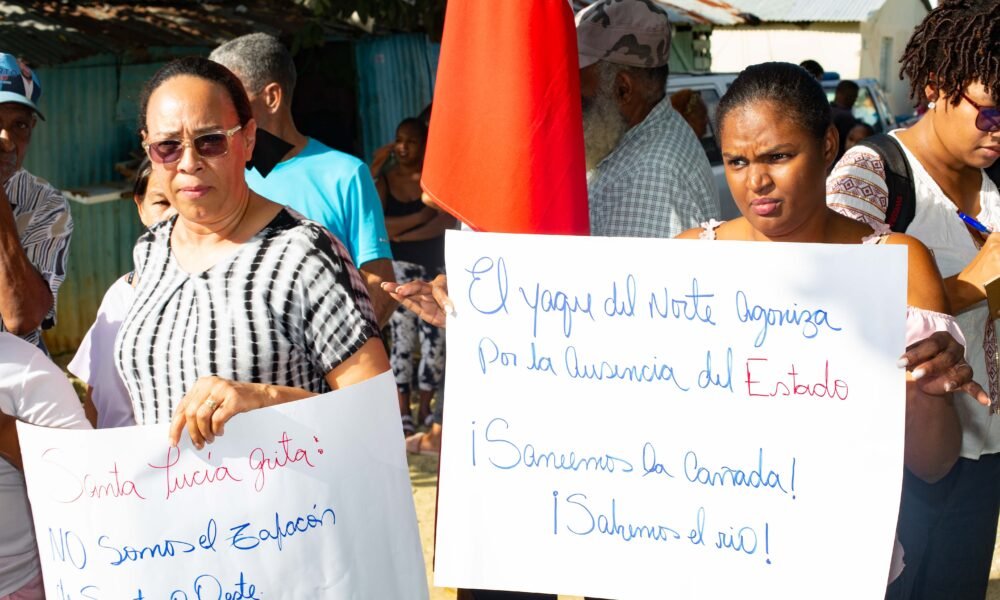 Santa Lucía grita:
NO Somos el Zafacón
de Santo Oeste
El yaque del Norte agoniza
por la Ausencia del Estado
¡Saneemos la Cañada!
¡Salvemos el río!